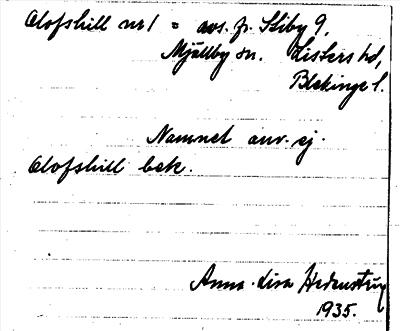 Olofshill nr 1 = avs. fr. Stiby 9,
Mjällby sn. Listers hd,
Blekinge l.
Namnet anv. ej.
Olofshill bek.
Anna-Lisa Hedenstrug
1935.